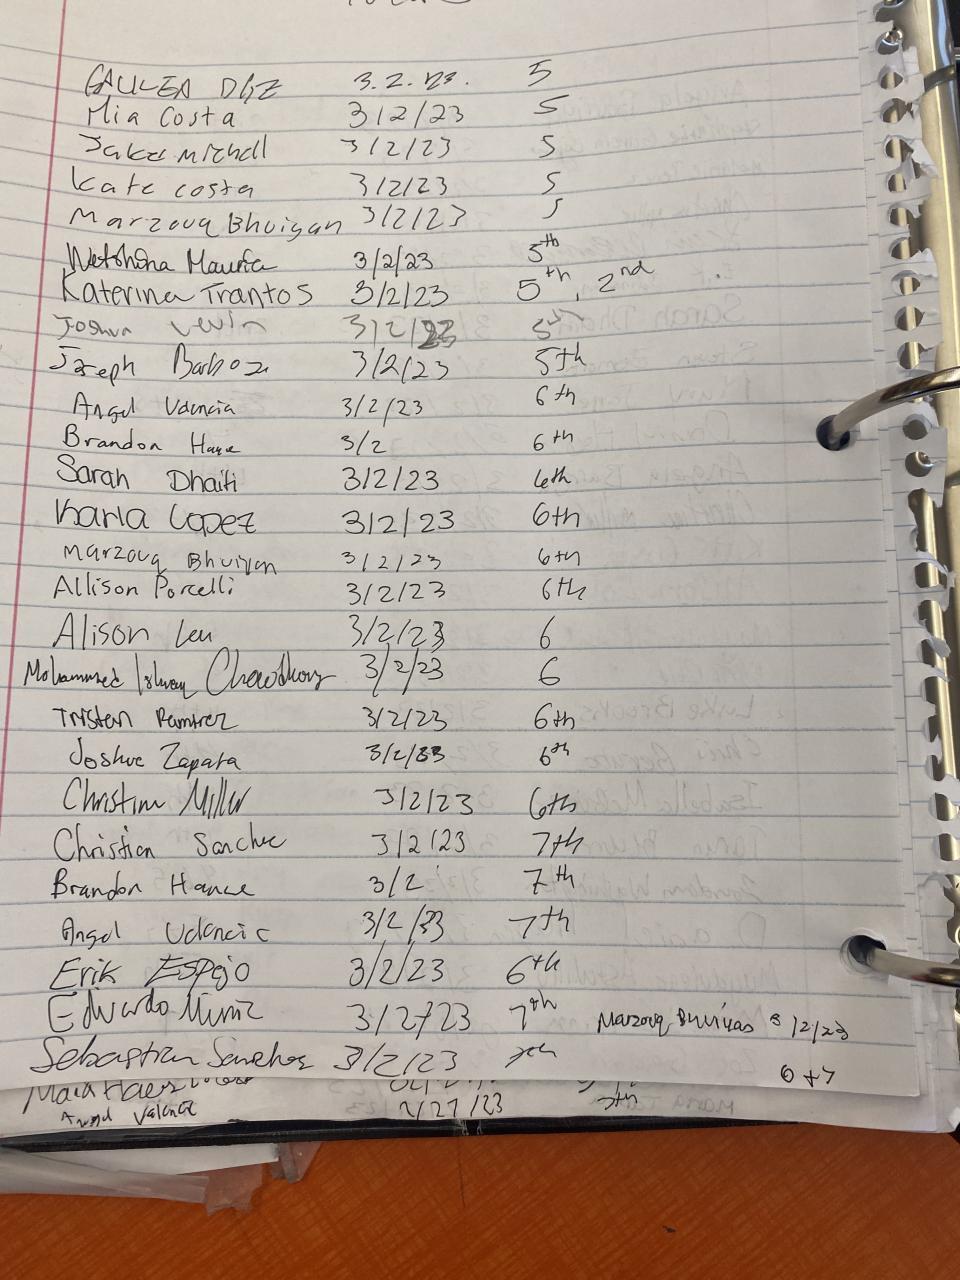 3.2.23. 5
Mia Costa 3/2/23 5
Jake Michell 3/2/23 5
Kate costa 3/2/23 5
Marzouq Bhuiyan 3/2/23 5
3/2/23 5th
Katerina Trantos 3/2/23 5th, 2nd
Joshua Levin 3/2/23 5th
Joseph Barboza 3/2/23 5th
Angel Valencia 3/2/23 6th
Brandon 3/2 6th
Sarah Dhaiti 3/2/23 6th
Karla Lopez 3/2/23 6th
Marzouq Bhuiyan 3/2/23 6th
Allison Porcelli 3/2/23 6th
Alison Leu 3/2/23 6
Mohammed Chowdhury 3/2/23 6
Tristan Ramirez 3/2/23 6th
Joshue Zapata 3/2/23 6th
Christian Miller 3/2/23 6th
Christian Sanchez 3/2/23 7th
Brandon Hance 3/2 7th
Angel Valencia 3/2/23 7th
Erik Espejo 3/2/23 6th
Edwardo Muniz 3/2/23 7th Marzouq 3/2/23
Sebastian Sanchez 3/2/23 7th 6+7
Angel Valencia 2/27/23 7th